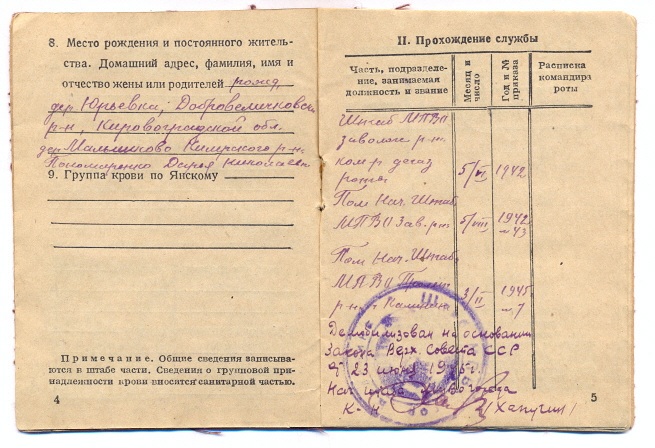 8. Место рождения и постоянного житель-
ства. Домашний адрес, фамилия, имя и
отчество жены или родителей рожд.
дер. Юрьевка, Добровеличковск
р-н, Кировоградской обл.
дер. Мальчиково Кимрского р-на
Пономаренко Дарья Николаевн
9. Группа крови по Янскому
Примечание. Общие сведения записыва-
ются в штабе части. Сведения о групповой при-
надлежности крови вносятся санитарной частью.
4
II. Прохождение службы
Часть, подразделе-
ние, занимаемая
должность и звание
Месяц и
число
Год и №
приказа
Расписка
командира
роты
Штаб МПВО
заволж р-на
ком-р дегаз
роты 5/VI 1942
Пом. Нач. Штаба
МПВО Зав. р-на 5/VIII 1942
№ 43
Пом Нач. Штаба
МПВО
р-на г. Калинина 3/II 1945
№ 7
Демобилизован на основании
Закона Верх. Совета СССР
от 23 июня 1945 г.
Нач.
/Хапугин/
5